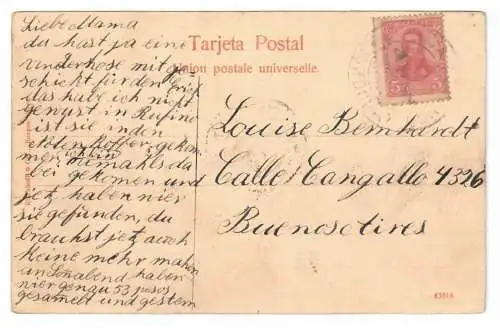 Liebe Mama
du hast ja eine
unterhose mit ge
schickt für den
das habe ich nicht
gewust in Rufino
ist sie in den
roten Koffer gekom
men ich bin niemahls da
bei gekomen und
jetz haben wier
sie gefunden, du
brauchst jetz auch
keine mehr machen
am Sonabend haben
wier genau 53 pesos
gesamelt und gestern
Tarjeta Postal
Union postale universelle.
5
5
Louise Bernhardt
Calle: Cangallo 4326
Buenos Aires